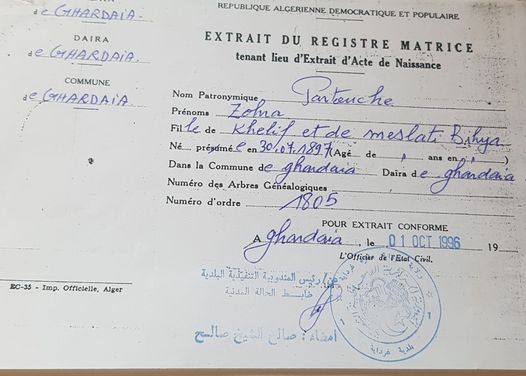 de GHARDAIA
DAIRA
de GHARDAIA
COMMUNE
de GHARDAIA
REPUBLIQUE ALGERIENNE DEMOCRATIQUE ET POPULAIRE
EXTRAIT DU REGISTRE MATRICE
tenant lieu d'Extrait d'Acte de Naissance
Nom Patronymique Partouche
Prénoms Zohra
Fille de Khelif et de meslati
Née présumé e en 30.07.1897 (Agé de ans en )
Dans la Commune de ghardaia Daïra de ghardaia
Numéro des Arbres Généalogiques
Numéro d'ordre 1805
POUR EXTRAIT CONFORME
A ghardaia, le 01 OCT 1996 19
L'Officier de l'Etat Civil.
EC-35 - Imp. Officielle, Alger
عن/رئيس المندوبية التنفيذية البلدية
ضابط الحالة المدنية
امضاء: صالح الشيخ صالح
بلدية غرداية